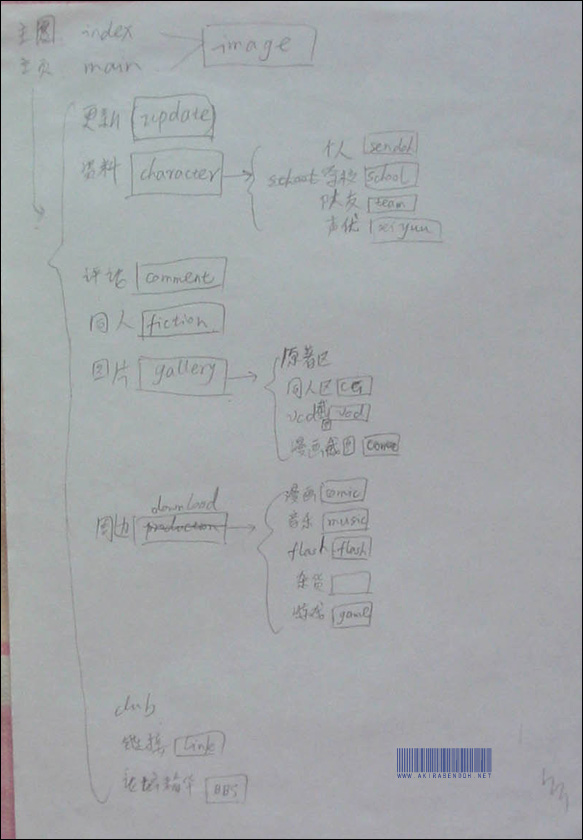 主图 index image
主页 main
更新 update
资料 character
个人 sendoh
school 学校 school
队友 team
声优 seiyuu
评论 comment
同人 fiction
图片 gallery
原著区
同人区 CG
vcd截图 vcd
漫画截图 comic
download
周边 production
漫画 comic
音乐 music
flash flash
杂货
游戏 game
club
链接 link
论坛精华 BBS
WWW.AKIRASENDOH.NET